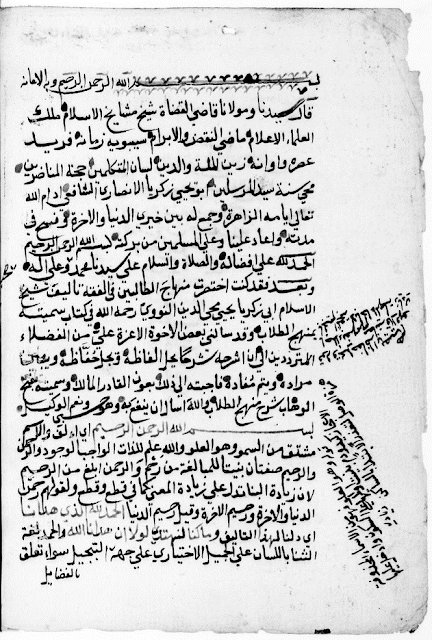 بسم الله الرحمن الرحيم وبه الاعانة
قال سيدنا ومولانا قاضي القضاة شيخ مشايخ الاسلام ملك
العلماء الاعلام ماضي النقض والابرام سيبويه زمانه فريد
عصره واوانه زين الملة والدين لسان المتكلمين حجة المناظرين
محي سنة سيد المرسلين ابو يحيى زكريا الانصاري الشافعي ادام الله
تعالى ايامه الزاهرة وجمع له بين خيري الدنيا والاخرة وفسح في
مدته واعاد علينا وعلى المسلمين من بركته بسم الله الرحمن الرحيم
الحمد لله على افضاله والصلاة والسلام على سيدنا محمد وعلى اله
وبعد فقد كنت اختصرت منهاج الطالبين في الفقه تاليف شيخ
الاسلام ابي زكريا يحيى محي الدين النووي رحمه الله في كتاب سميته
بمنهج الطلاب وقد سالني بعض الاخوة الاعزة علي من الفضلاء
المترددين الي ان اشرحه شرحا يحل الفاظه ويجل حفاظه ويبين
مراده ويتمم مفاده فاجبته الى ذلك بعون القادر المالك وسميته بفتح
الوهاب بشرح منهج الطلاب والله اسال ان ينفع به وهو حسبي ونعم الوكيل
بسم الله الرحمن الرحيم اي اولف والاسم
مشتق من السمو وهو العلو والله علم للذات الواجب الوجود والرحمن
والرحيم صفتان بنيتا للمبالغة من رحم والرحمن ابلغ من الرحيم
لان زيادة البنا تدل على زيادة المعنى كما في قطع وقطع ولقولهم رحمن
الدنيا والاخرة ورحيم الاخرة وقيل رحيم الدنيا الحمد لله الذي هدانا
اي دلنا لهذا التاليف وما كنا لنهتدي لولا ان هدانا الله والحمد لغة
الثنا باللسان على الجميل الاختياري على جهة التبجيل سواء تعلق
بالفضايل